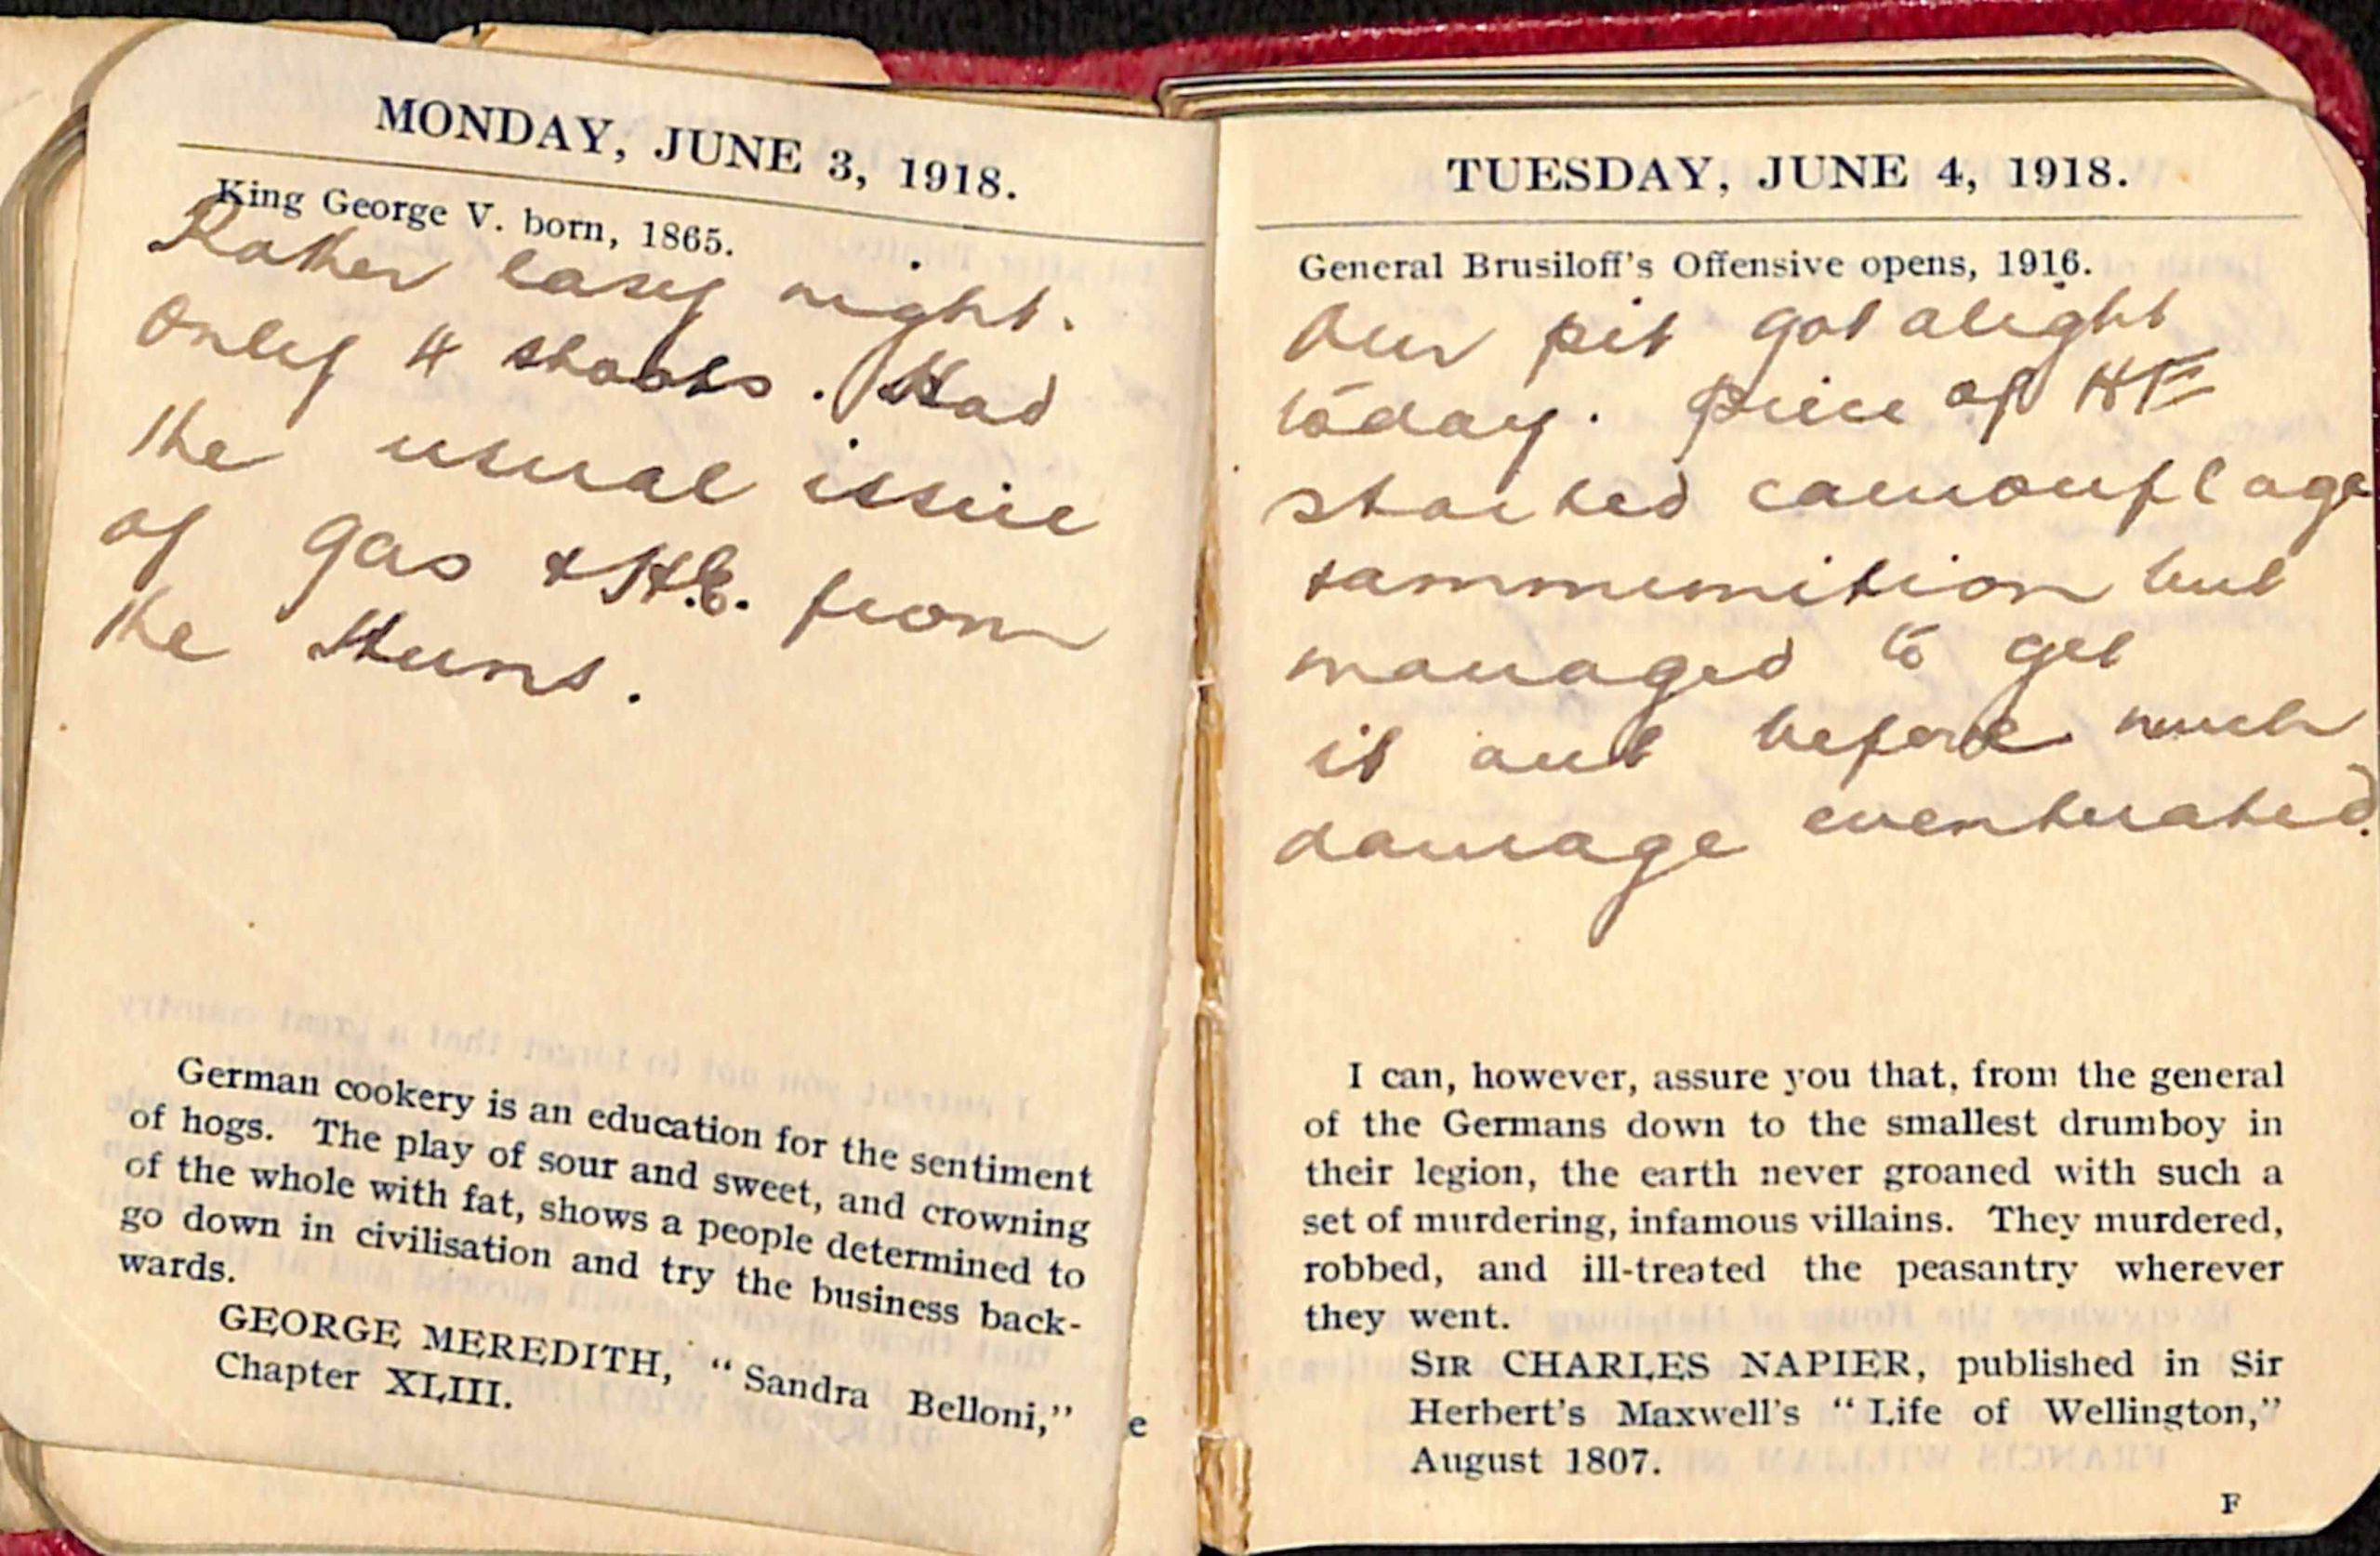 MONDAY, JUNE 3, 1918.
King George V. born, 1865.
Rather easy night.
Only 4 shoots. Had
the usual issue
of gas & H.E. from
the Huns.
German cookery is an education for the sentiment
of hogs. The play of sour and sweet, and crowning
of the whole with fat, shows a people determined to
go down in civilisation and try the business back-
wards.
GEORGE MEREDITH, “Sandra Belloni,”
Chapter XLIII.
e
TUESDAY, JUNE 4, 1918.
General Brusiloff's Offensive opens, 1916.
Our pit got alight
today. Piece of HE
started camouflage
& ammunition but
managed to get
it out before much
damage eventuated.
I can, however, assure you that, from the general
of the Germans down to the smallest drumboy in
their legion, the earth never groaned with such a
set of murdering, infamous villains. They murdered,
robbed, and ill-treated the peasantry wherever
they went.
SIR CHARLES NAPIER, published in Sir
Herbert's Maxwell's “Life of Wellington,”
August 1807.
F